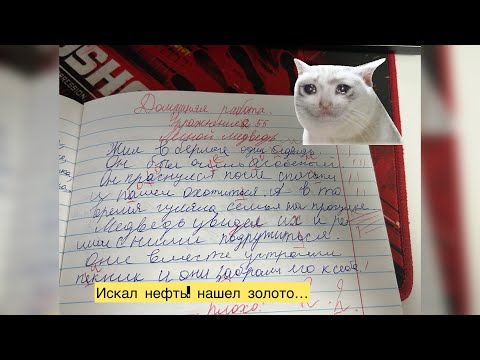 Домашняя работа.
Упражнение 55
Лесной медведь
Жил в берлоге один медведь.
Он был очень особеный
Он праснулся после спячки
и пашел охотиться. А в то
время гуляла семья на прогулке
Медведь увидел их и ре-
шил с ними подружиться.
Они вместе устроили
пикник и они забрали его к себе.
Искал нефть! нашел золото...
плохо! 2